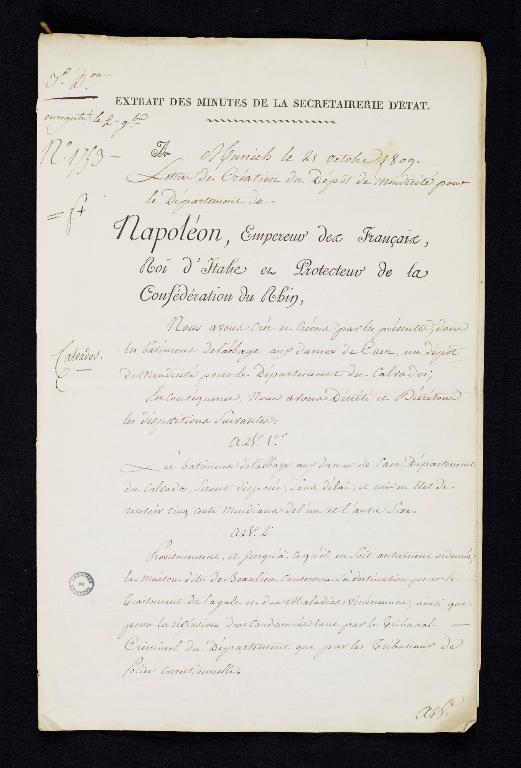 3e Don
enregistré le 2 9bre
EXTRAIT DES MINUTES DE LA SECRETAIRERIE D'ETAT.
N° 1753
A Munich le 21 octobre 1809.
Lettre de Création du Dépôt de mendicité pour
le Département du
Napoléon, Empereur des Français,
Roi d'Italie et Protecteur de la
Confédération du Rhin,
Calvados.
Nous avons créé et créons par les présentes, dans
les bâtimens de l'abbaye aux dames de Caen, un dépôt
de Mendicité pour le Département du Calvados;
En conséquence, Nous avons Décrété et Décrétons
les dispositions Suivantes:
Art. 1er
Les bâtimens de l'abbaye aux dames de Caen, Département
du Calvados, Seront disposés, Sans délai, et mis en état de
recevoir cinq cents Mendians de l'un et l'autre Sexe.
Art. 2
Provisoirement, et jusqu'à ce qu'il en Soit autrement ordonné,
la Maison dite de Beaulieu conservera Sa destination pour le
Traitement de la gale et des Maladies Vénériennes, ainsi que
pour la réclusion des Condamnés tant par le Tribunal
Criminel du Département que par les Tribunaux de
Police Correctionnelle.
Art.